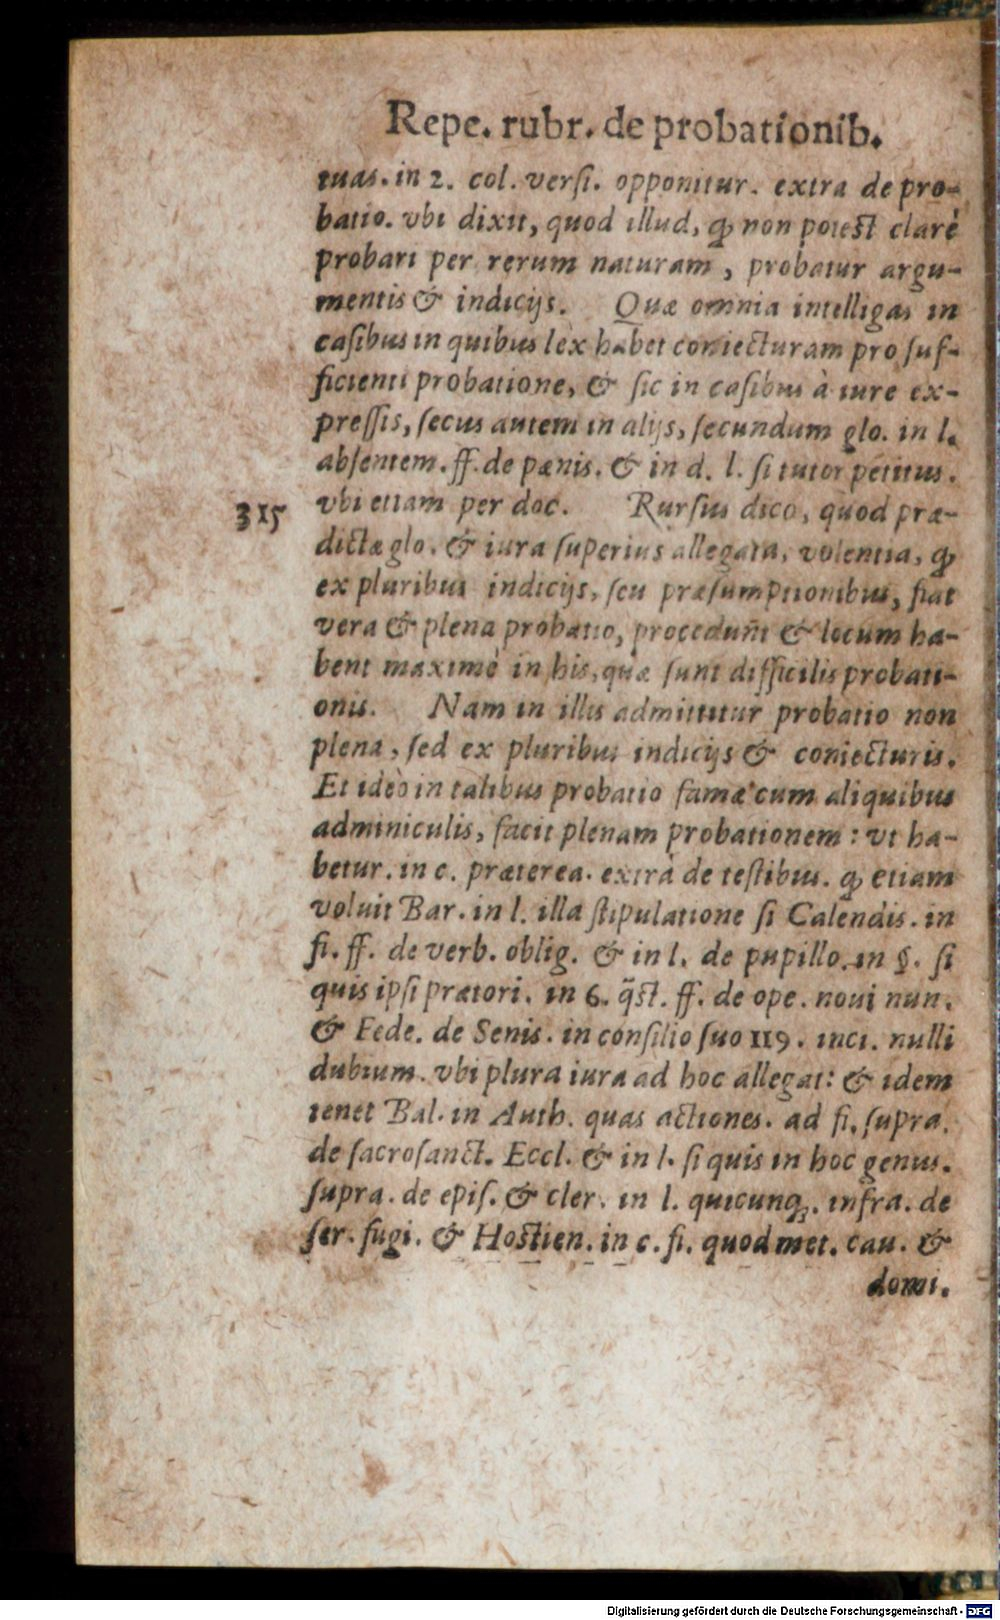 Repe. rubr. de probationib.
tuas. in 2. col. versi. opponitur. extra de pro-
batio. vbi dixit, quod illud, ꝙ non potest clarè
probari per rerum naturam, probatur argu-
mentis & indicijs. Quæ omnia intelligas in
casibus in quibus lex habet coniecturam pro suf-
ficienti probatione, & sic in casibus à iure ex-
pressis, secus autem in alijs, secundum glo. in l.
absentem. ff. de pœnis. & in d. l. si tutor petitus.
vbi etiam per doc. Rursius dico, quod præ-
315
dictæ glo. & iura superius allegata, volentia, ꝙ
ex pluribus indicijs, seu præsumptionibus, fiat
vera & plena probatio, procedunt & locum ha-
bent maximè in his, quæ sunt difficilis probati-
onis. Nam in illis admittitur probatio non
plena, sed ex pluribus indicijs & coniecturis.
Et ideò in talibus probatio famæ cum aliquibus
adminiculis, facit plenam probationem: vt ha-
betur. in c. præterea. extrà de testibus. ꝙ etiam
voluit Bar. in l. illa stipulatione si Calendis. in
fi. ff. de verb. oblig. & in l. de pupillo. in §. si
quis ipsi prætori. in 6. q̃st. ff. de ope. noui nun.
& Fede. de Senis. in consilio suo 119. inci. nulli
dubium. vbi plura iura ad hoc allegat: & idem
tenet Bal. in Auth. quas actiones. ad fi. supra.
de sacrosanct. Eccl. & in l. si quis in hoc genus.
supra. de epis. & cler. in l. quicunq;. infra. de
ser. fugi. & Hostien. in c. fi. quod met. cau. &
domi.
Digitalisierung gefördert durch die Deutsche Forschungsgemeinschaft - DFG